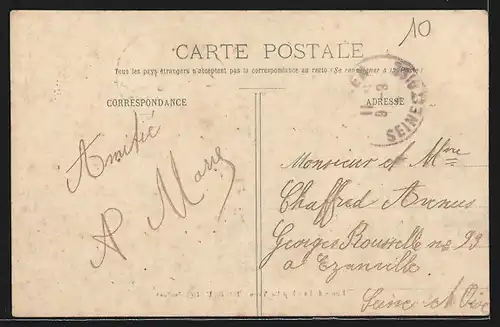 10
CARTE POSTALE
Tous les pays étrangers n'acceptent pas la correspondance au recto (Se renseigner à la poste)
CORRESPONDANCE
ADRESSE
SEINE
Amitié
A Marre
Monsieur et Mme
Chaffred Avenue
Georges Rousselle no 23
a Ezanville
Seine et Oise